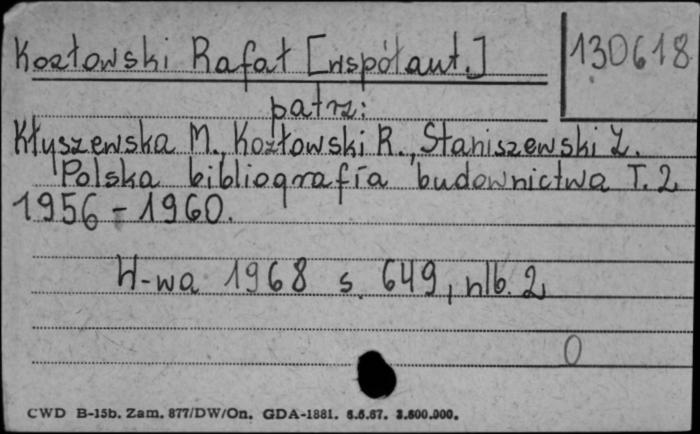 Kozłowski Rafał [współaut.]
130618
patrz:
Kłyszewska M., Kozłowski R., Staniszewski Z.
Polska bibliografia budownictwa T. 2
1956 - 1960.
W-wa 1968 s. 649, nlb. 2
0
CWD B-15b. Zam. 877/DW/On. GDA-1881. 6.6.67. 3.600.000.